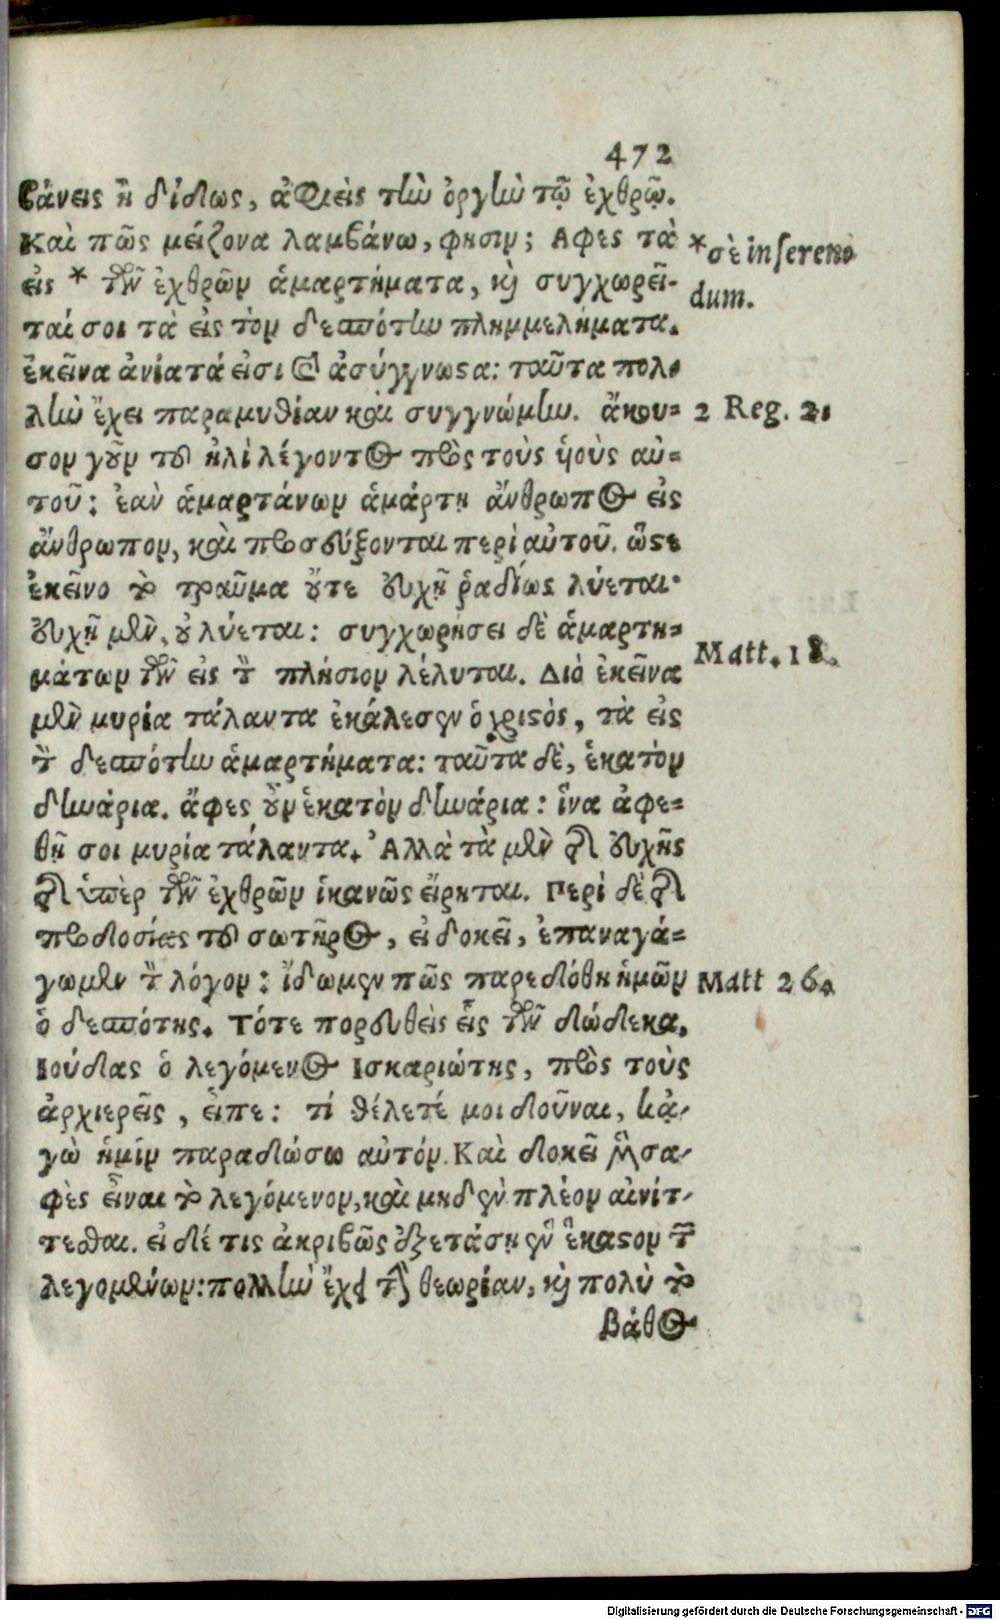 472
βάνεις ἢ δίδως, ἀφιεὶς τὴν ὀργὴν τῷ ἐχθρῷ.
Καὶ πῶς μείζονα λαμβάνω, φησιν; Αφες τὰ *σὲ inseren-
εἰς * τῶν ἐχθρῶν ἁμαρτήματα, καὶ συγχωρεῖ- dum.
ταί σοι τὰ εἰς τὸν δεσπότην πλημμελήματα.
ἐκεῖνα ἀνίατά εἰσι καὶ ἀσύγγνωστα: ταῦτα πολ-
λὴν ἔχει παραμυθίαν καὶ συγγνώμην. ἄκου- 2 Reg. 21
σον γοῦν τοῦ ἠλὶ λέγοντος πρὸς τοὺς ὑιοὺς αὐ-
τοῦ: ἐὰν ἁμαρτάνων ἁμάρτῃ ἄνθρωπος εἰς
ἄνθρωπον, καὶ προσεύξονται περὶ αὐτοῦ. ὥστε
ἐκεῖνο τὸ τραῦμα οὔτε εὐχῇ ῥαδίως λύεται.
εὐχῇ μὲν, οὐ λύεται: συγχωρήσει δὲ ἁμαρτη-
μάτων τῶν εἰς τὸν πλήσιον λέλυται. Διὸ ἐκεῖνα Matt. 18.
μὲν μυρία τάλαντα ἐκάλεσεν ὁ χριστὸς, τὰ εἰς
τὸν δεσπότην ἁμαρτήματα: ταῦτα δὲ, ἑκατὸν
δηνάρια. ἄφες οὖν ἑκατὸν δηνάρια: ἵνα ἀφε-
θῇ σοι μυρία τάλαντα. Ἀλλὰ τὰ μὲν περὶ εὐχῆς
τῆς ὑπὲρ τῶν ἐχθρῶν ἱκανῶς εἴρηται. Περὶ δὲ τῆς
προδοσίας τοῦ σωτῆρος, εἰ δοκεῖ, ἐπαναγά-
γωμεν τὸν λόγον: ἴδωμεν πῶς παρεδόθη ἡμῶν Matt 26.
ὁ δεσπότης. Τότε πορευθεὶς εἷς τῶν δώδεκα,
Ιούδας ὁ λεγόμενος Ισκαριώτης, πρὸς τοὺς
ἀρχιερεῖς, εἶπε: τί θέλετέ μοι δοῦναι, κᾀ-
γὼ ἡμῖν παραδώσω αὐτόν. Καὶ δοκεῖ μὲν σα-
φὲς εἶναι τὸ λεγόμενον, καὶ μηδὲν πλέον αἰνίτ-
τεσθαι. εἰ δέ τις ἀκριβῶς ἐξετάσῃ ἓν ἕκαστον τῶν
λεγομένων: πολλὴν ἔχει τὴν θεωρίαν, καὶ πολὺ τὸ
βάθος
Digitalisierung gefördert durch die Deutsche Forschungsgemeinschaft - DFG